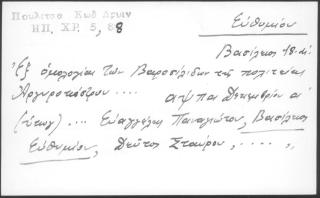 Πουλίτσα Κωδ Δρυϊν
ΗΠ, ΧΡ. 5, 88
Εὐθυμίου
Βασίλειος 18.
Ἐξ ὁμολογίας τῶν Βαροσιλίδων τῆς πολιτείας
Ἀργυροκάστρου .... αψπα Δεκεμβρίου α'
.... Εὐαγγέλης Παναγιώτου, Βασίλειος
Εὐθυμίου, Σταύρου, .... ,